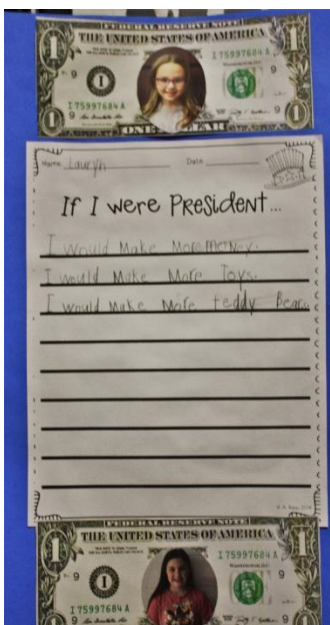 FEDERAL RESERVE NOTE
THE UNITED STATES OF AMERICA
I 75997684 A
9
I
9
I 75997684 A
9
1
ONE
Name Lauryn Date
If I were PResident...
I would Make More money.
I would Make More Toys.
I would Make More teddy Bear.
FEDERAL RESERVE NOTE
THE UNITED STATES OF AMERICA
I 75997684 A
9
I
9
I 75997684 A
9